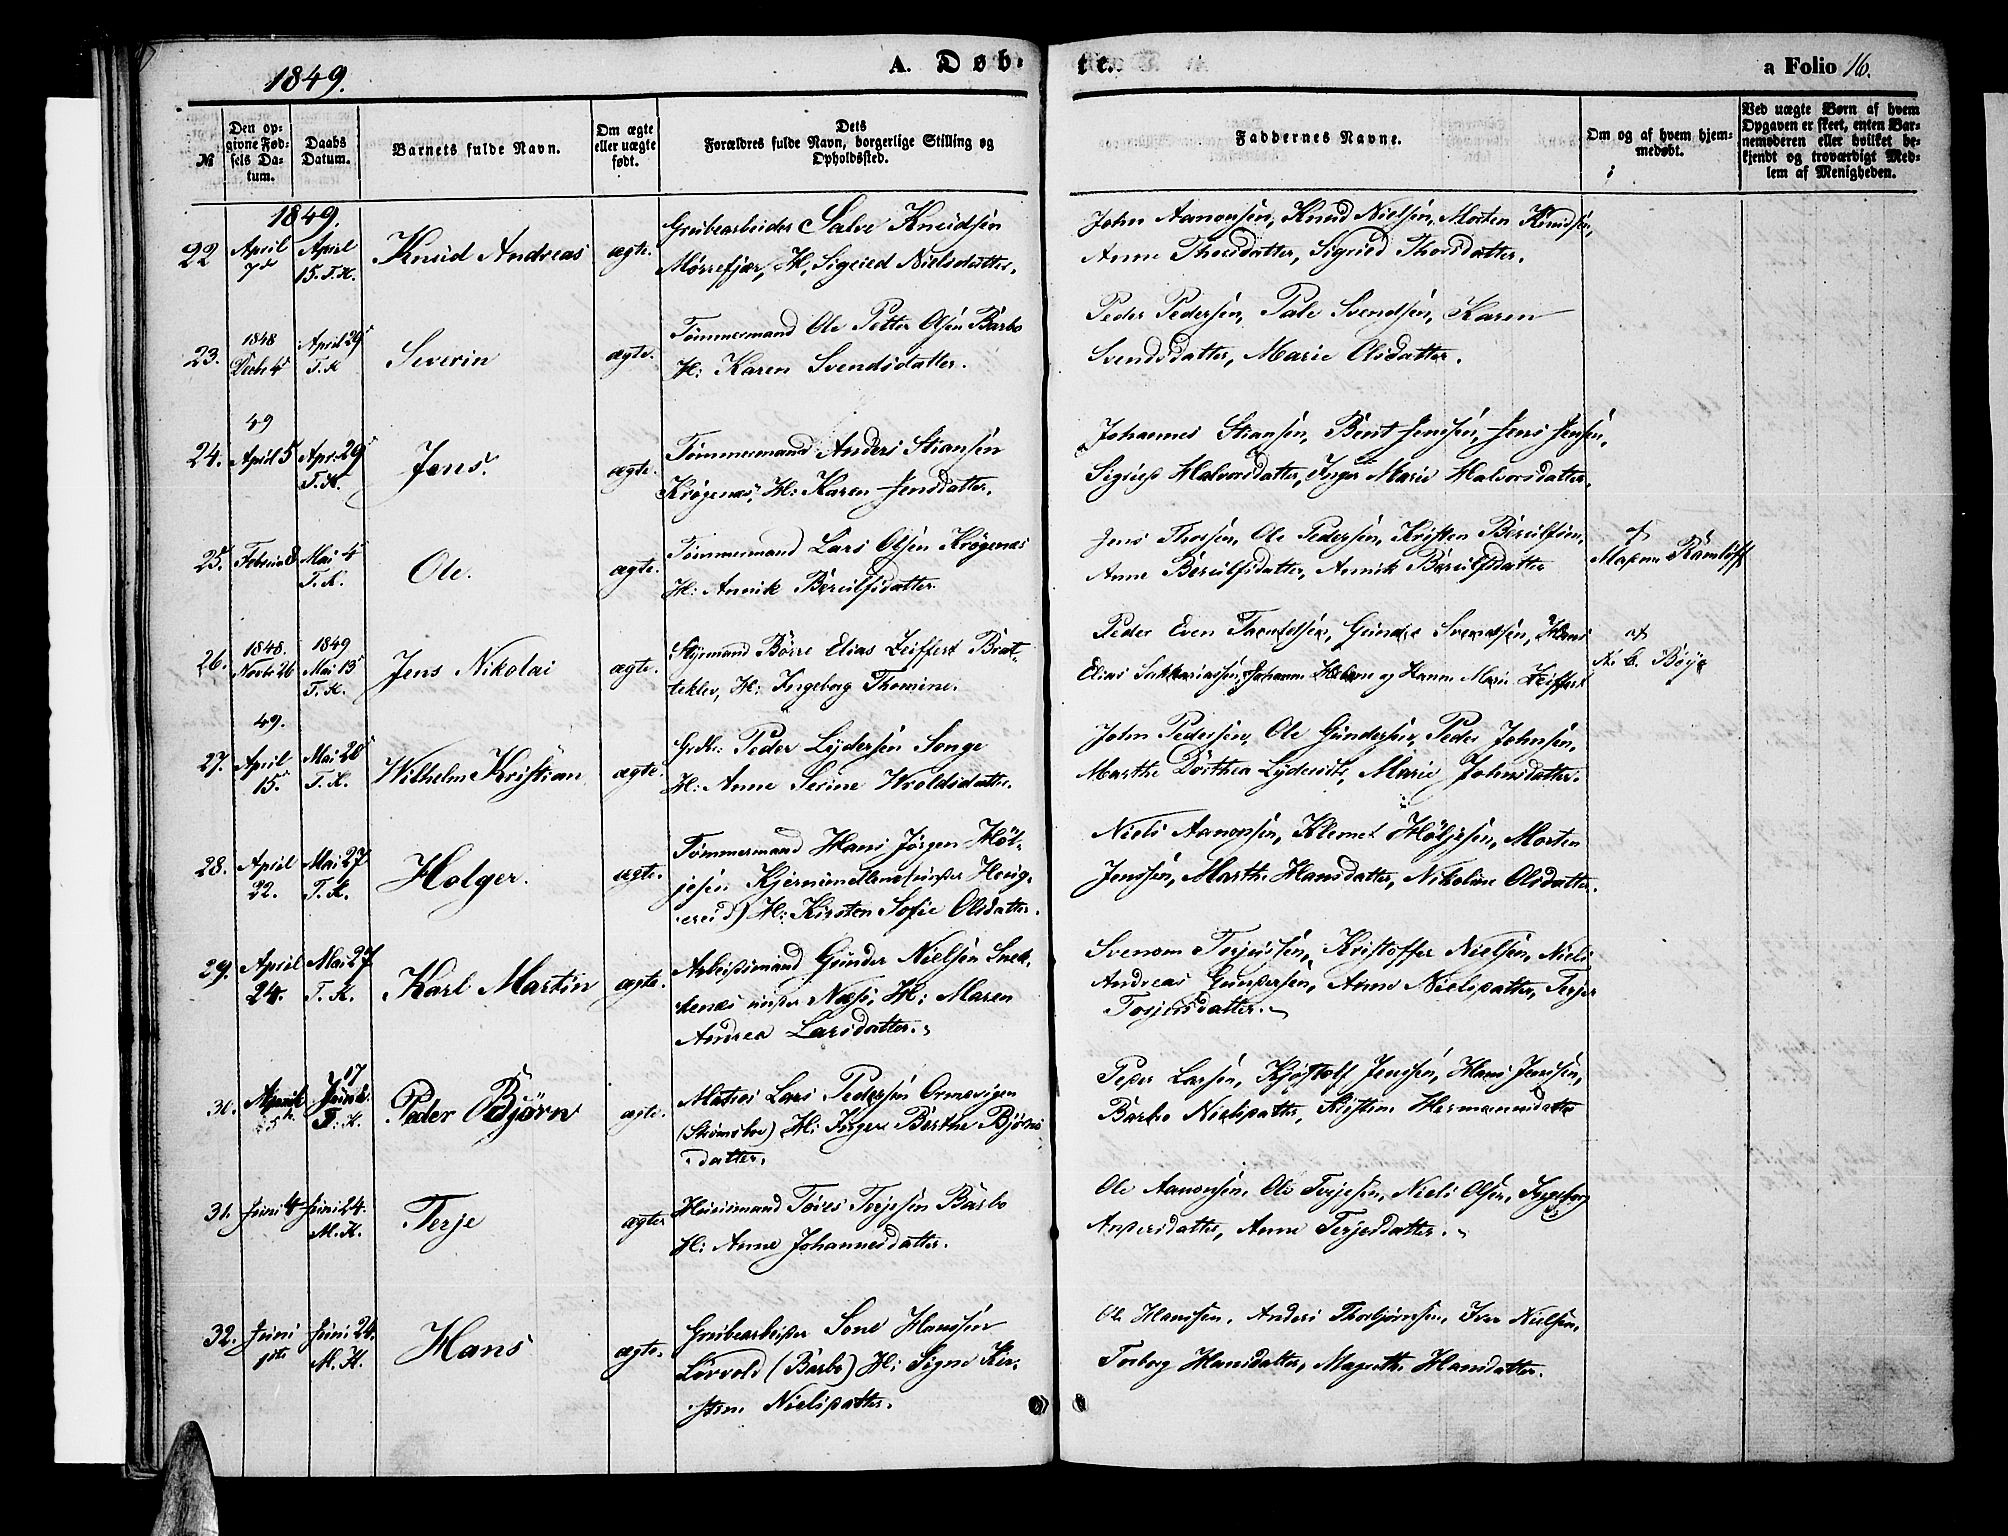 1849.
A. Døb-
te.
a Folio 16.
№
Den op-
givne Fød-
sels Da-
tum.
Daabs
Datum.
Barnets fulde Navn.
Om ægte
eller uægte
født.
Dets
Forældres fulde Navn, borgerlige Stilling og
Opholdssted.
Faddernes Navne.
Om og af hvem hjem-
medøbt.
Ved uægte Børn af hvem
Opgaven er skeet, enten Bar-
nemoderen eller hvilket be-
kjendt og troværdigt Med-
lem af Menigheden.
1849.
22 April 7de April 15. T. K. Knud Andreas ægte. Grubearbeider Salve Knudsen
Mørrefjær, H. Sigried Nielsdatter.
John Aanonsen, Knud Nielsen, Morten Knudsen,
Anne Thorsdatter, Sigried Thorsdatter.
23. 1848 Decbr 4 April 29 T. K. Severin ægte. Tømmermand Ole Petter Olsen Barbo
H: Karen Svendsdatter.
Peder Pedersen, Pale Svendsen, Karen
Svendsdatter, Marie Olsdatter.
24. 49 April 5 Apr. 29 T. K. Jens. ægte. Tømmermand Anders Stiansen
Krøgenæs, H: Karen Jensdatter.
Johannes Stiansen, Bent Jensen, Jens Jensen,
Sigried Halvorsdatter, Inger Marie Halvorsdatter.
25. Februar 8 Mai 4 T. K. Ole. ægte. Tømmermand Lars Olsen Krøgenæs
H: Annik Berulfsdatter.
Jens Thorsen, Ole Pedersen, Kristen Berulfsen,
Anne Berulfsdatter, Annik Berulfsdatter
af
Madame Ramløff
26. 1848. Novbr 26 1849 Mai 13 T. K. Jens Nikolai ægte. Styrmand Børre Elias Zeiffert Brat-
teklev, H: Ingeborg Thomine.
Peder Even Tarjeldsen, Gunder Svendsen, Hans
Elias Sakkariassen, Johanne Helene og Hanne Marie Zeiffert
af
N. C. Bøye
27. 49. April 15. Mai 20 T. K. Wilhelm Kristian ægte. Grdbr: Peder Lydersen Songe
H: Anne Serine Wroldsdatter.
John Pedersen, Ole Gundersen, Peder Johnsen,
Marthe Dorthea Lydersdtr, Marie Johnsdatter.
28. April 22. Mai 27 T. K. Holger. ægte. Tømmermand Hans Jørgen Høl-
jesen Kjernimellene (under Heig-
ereid) H: Kirsten Sofie Olsdatter.
Niels Aanonsen, Klemet Høljesen, Morten
Jenssen, Marthe Hansdatter, Nikoline Olsdatter.
29. April 24. Mai 27 T. K. Karl Martin ægte. Arbeidsmand Gunder Nielsen Snek-
kenæs under Næs; H: Maren
Andrea Larsdatter.
Svenom Terjussen, Kristoffer Nielsen, Niels
Andreas Gundersen, Anne Nielsdatter, Terjer
Torjersdatter.
30. April 5te Juni 17 T. K. Peder Bjørn ægte. Matros Lars Pedersen Ormevigen
(Strømsboe) H: Inger Berthe Bjørns
datter.
Peder Larsen, Kjøstolf Jenssen, Hans Jenssen,
Barbro Nielsdatter, Kirstine Hermansdatter
31. Juni 4 Juni 24. M. K. Terje ægte Huusmand Tores Terjesen Barbo
H: Anne Johannesdatter.
Ole Aanonsen, Ole Terjesen, Niels Olsen, Ingeborg
Andersdatter, Anne Terjesdatter.
32. Juni 1ste Juni 24. M. K. Hans ægte. Grubearbeider Sone Hanssen
Lørvold (Barbo) H: Signe Kir-
stine Nielsdatter.
Ole Hanssen, Anders Thorbjørnsen, Iver Nielsen,
Torborg Hansdatter, Magrethe Hansdatter.